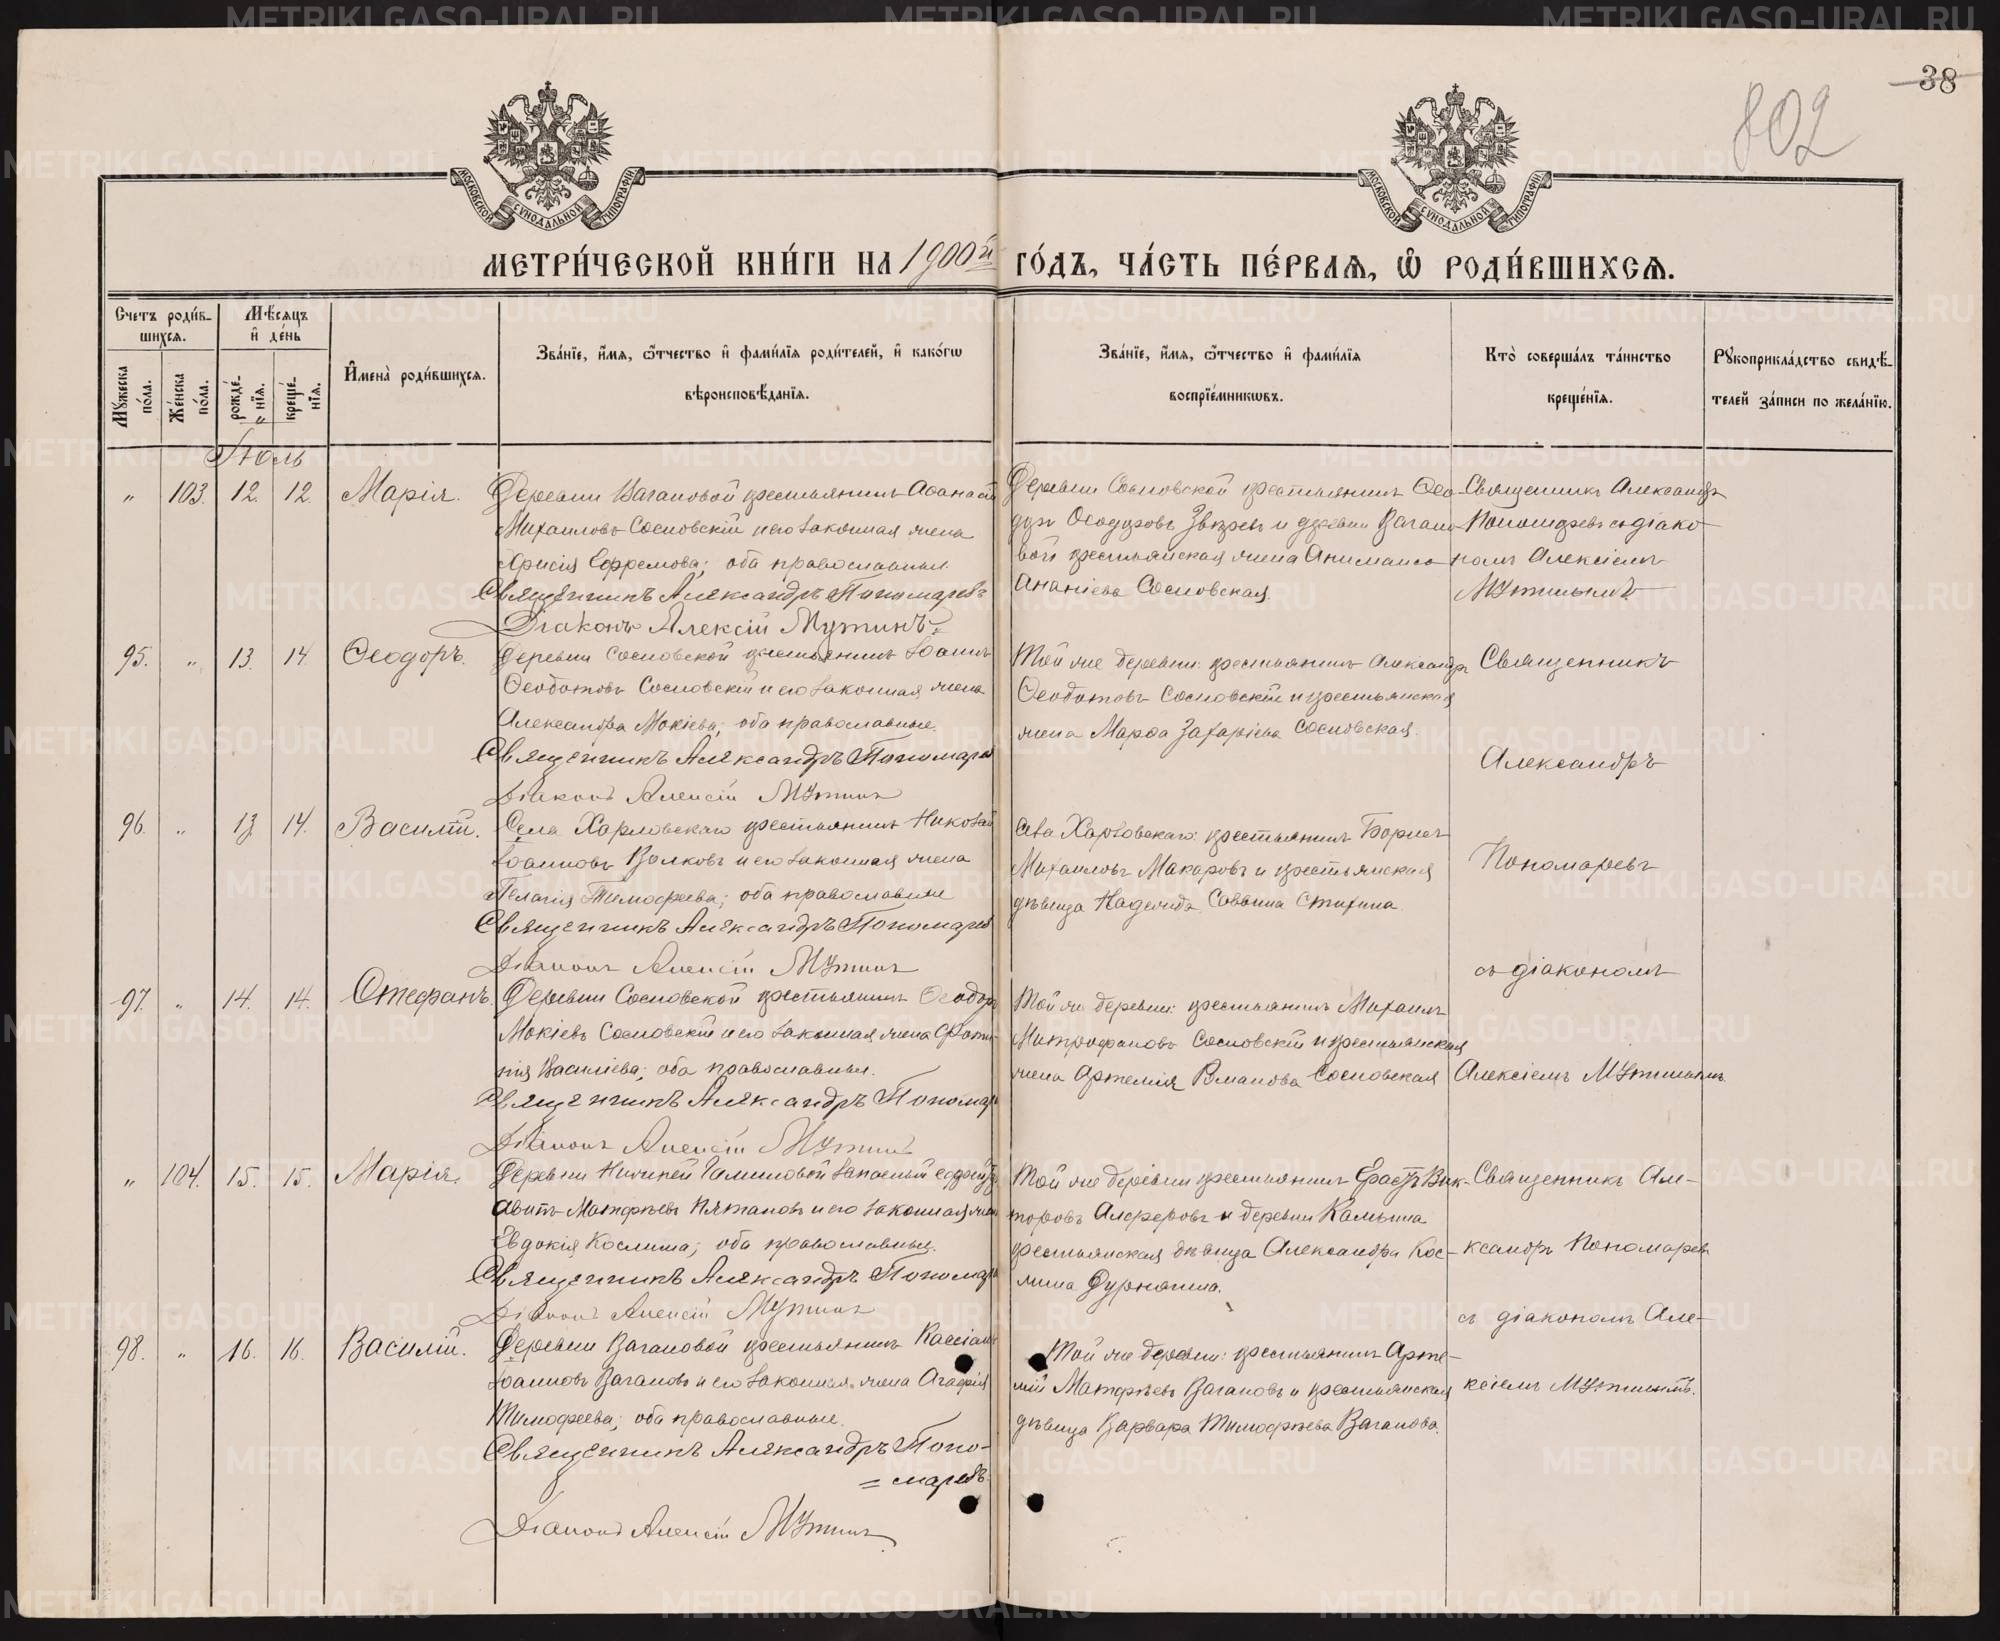 38
802
МОСКОВСКОЙ СѴНОДАЛЬНОЙ ТИПОГРАФІИ
МОСКОВСКОЙ СѴНОДАЛЬНОЙ ТИПОГРАФІИ
МЕТРИ́ЧЕСКОЙ КНИ́ГИ НА 1900й ГО́ДЪ, ЧА́СТЬ ПЕ́РВАѦ, Ѡ҆ РОДИ́ВШИХСѦ.
Счетъ роди́в-
шихсѧ.
Мѣ́сѧцъ
и҆ де́нь
Мꙋ́жеска по́ла.
Же́нска по́ла.
рожде́-
нїѧ.
креще́-
нїѧ.
И҆мена̀ роди́вшихсѧ.
Зва́нїе, и҆́мѧ, ѻ҆́тчество и҆ фами́лїѧ роди́телей, и҆ како́гѡ
вѣроисповѣ́данїѧ.
Зва́нїе, и҆́мѧ, ѻ҆́тчество и҆ фами́лїѧ
воспрїе́мникѡвъ.
Кто̀ соверша́лъ та́инство
креще́нїѧ.
Рꙋкоприкла́дство свидѣ́-
телей за́писи по жела́нїю.
Іюль
" 103. 12. 12. Марія.
Деревни Вагановой крестьянинъ Аѳанасій
Михаиловъ Сосновскій и его законная жена
Ефремова; оба православные.
Священникъ Александръ Пономаревъ
Діаконъ Алексій Мутинъ.
Деревни Сосновской крестьянинъ Ѳео-
доръ Ѳеодоровъ Звѣревъ и деревни Вагано-
вой крестьянская жена
Ананіева Сосновская.
Священникъ Александръ
Пономаревъ съ діако-
номъ Алексіемъ
Мутинымъ.
95. " 13. 14. Ѳеодоръ.
Деревни Сосновской крестьянинъ Іоаннъ
Ѳеодотовъ Сосновскій и его законная жена
Александра Мокіева; оба православные.
Священникъ Александръ Пономаревъ
Діаконъ Алексій Мутинъ
Той же деревни: крестьянинъ Александръ
Ѳеодотовъ Сосновскій и крестьянская
жена Марѳа Захаріева Сосновская.
Священникъ
Александръ
96. " 13 14. Василій.
Села Харловскаго крестьянинъ Николай
Іоанновъ Волковъ и его законная жена
Пелагія Тимофеева; оба православные
Священникъ Александръ Пономарев
Діаконъ Алексій Мутинъ
Села Харловскаго: крестьянинъ Борисъ
Михаиловъ Макаровъ и крестьянская
дѣвица Надежда Саввина Стихина.
Пономаревъ
съ діакономъ
97. " 14. 14. Стефанъ.
Деревни Сосновской крестьянинъ Ѳеодоръ
Мокіевъ Сосновскій и его законная жена Фоти-
нія Василіева; оба православные.
Священникъ Александръ Пономар
Діаконъ Алексій Мутинъ
Той же деревни: крестьянинъ Михаилъ
Митрофановъ Сосновскій и крестьянская
жена Артемія Романова Сосновская
Алексіемъ Мутинымъ.
" 104. 15. 15. Марія.
Деревни Нижней Галишовой запасный
Авитъ Матфѣевъ Пятановъ и его законная жена
Евдокія Космина; оба православные.
Священникъ Александръ Пономар
Діаконъ Алексій Мутинъ
Той же деревни крестьянинъ Ерастъ Вик-
торовъ Алферовъ и деревни
крестьянская дѣвица Александра Кос-
мина Дурнягина.
Священникъ Але-
ксандръ Пономаревъ
съ діакономъ Але-
ксіемъ Мутинымъ.
98. " 16. 16. Василій.
Деревни Вагановой крестьянинъ Кассіанъ
Іоанновъ Вагановъ и его законная жена Агафія
Тимофеева; оба православные.
Священникъ Александръ Поно-
=маревъ.
Діаконъ Алексій Мутинъ
Той же деревни: крестьянинъ Арте-
мій Матфѣевъ Вагановъ и крестьянская
дѣвица Варвара Тимофѣева Ваганова.
METRIKI.GASO-URAL.RU